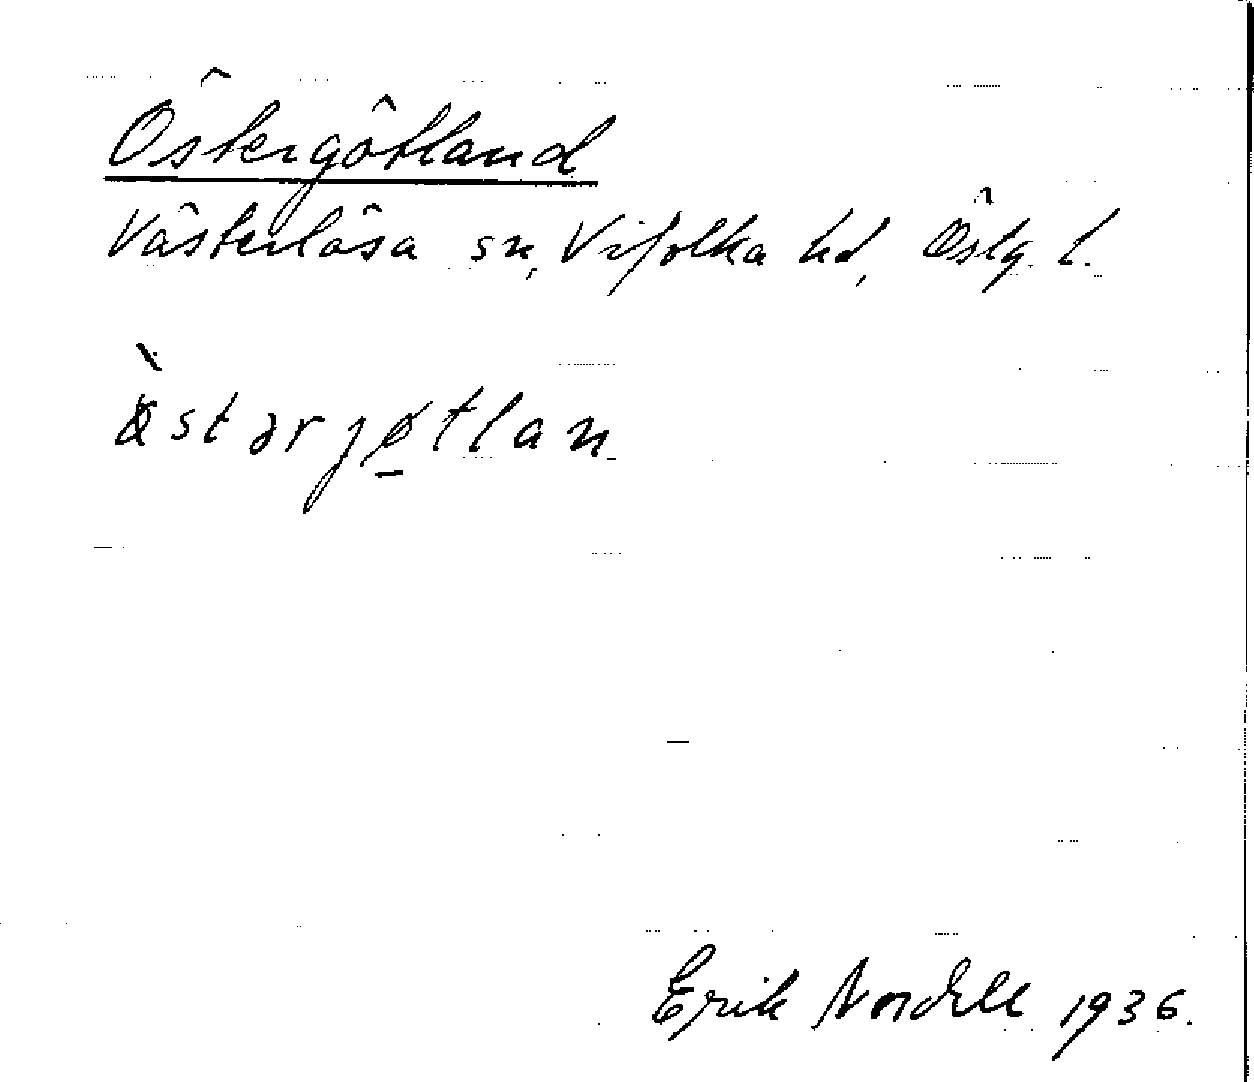 Östergötland
Västerlösa sn, Vifolka hd, Östg. l.
östərjøtlan
Erik Nordell 1936.